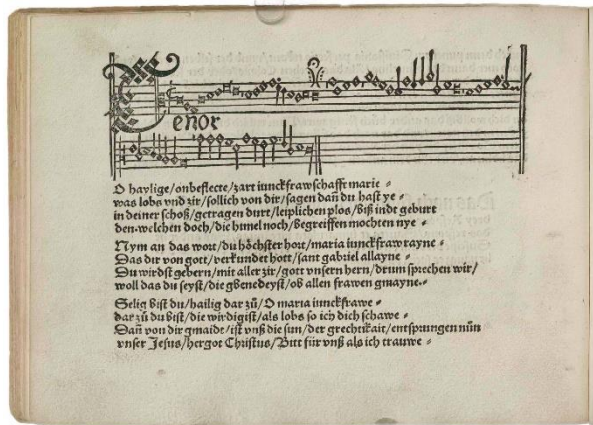 Tenor
O haylige/onbeflecte/zart iunckfrawschafft marie
was lobs vnd zir/sollich von dir/sagen dañ du hast ye
in deiner schoß/getragen durt/leiplichen plos/biß indt geburt
den welchen doch/die himel noch/begreiffen mochten nye
Nym an das wort/du höchster hort/maria iunckfraw rayne
Das dir von gott/verkundet hott/sant gabriel allayne
Du wirdst gebern/mit aller zir/gott vnsern hern/drum sprechen wir/
woll das du seyst/die gbenedeyst/ob allen frawen gmayne
Selig bist du/hailig dar zů/O maria iunckfrawe
dar zů du bist/die wirdigist/als lobs so ich dich schawe
Dañ von dir gmaide/ist vnß die sun/der grechtikait/entsprungen nůn
vnser Jesus/hergot Christus/Bitt für vnß als ich trauwe